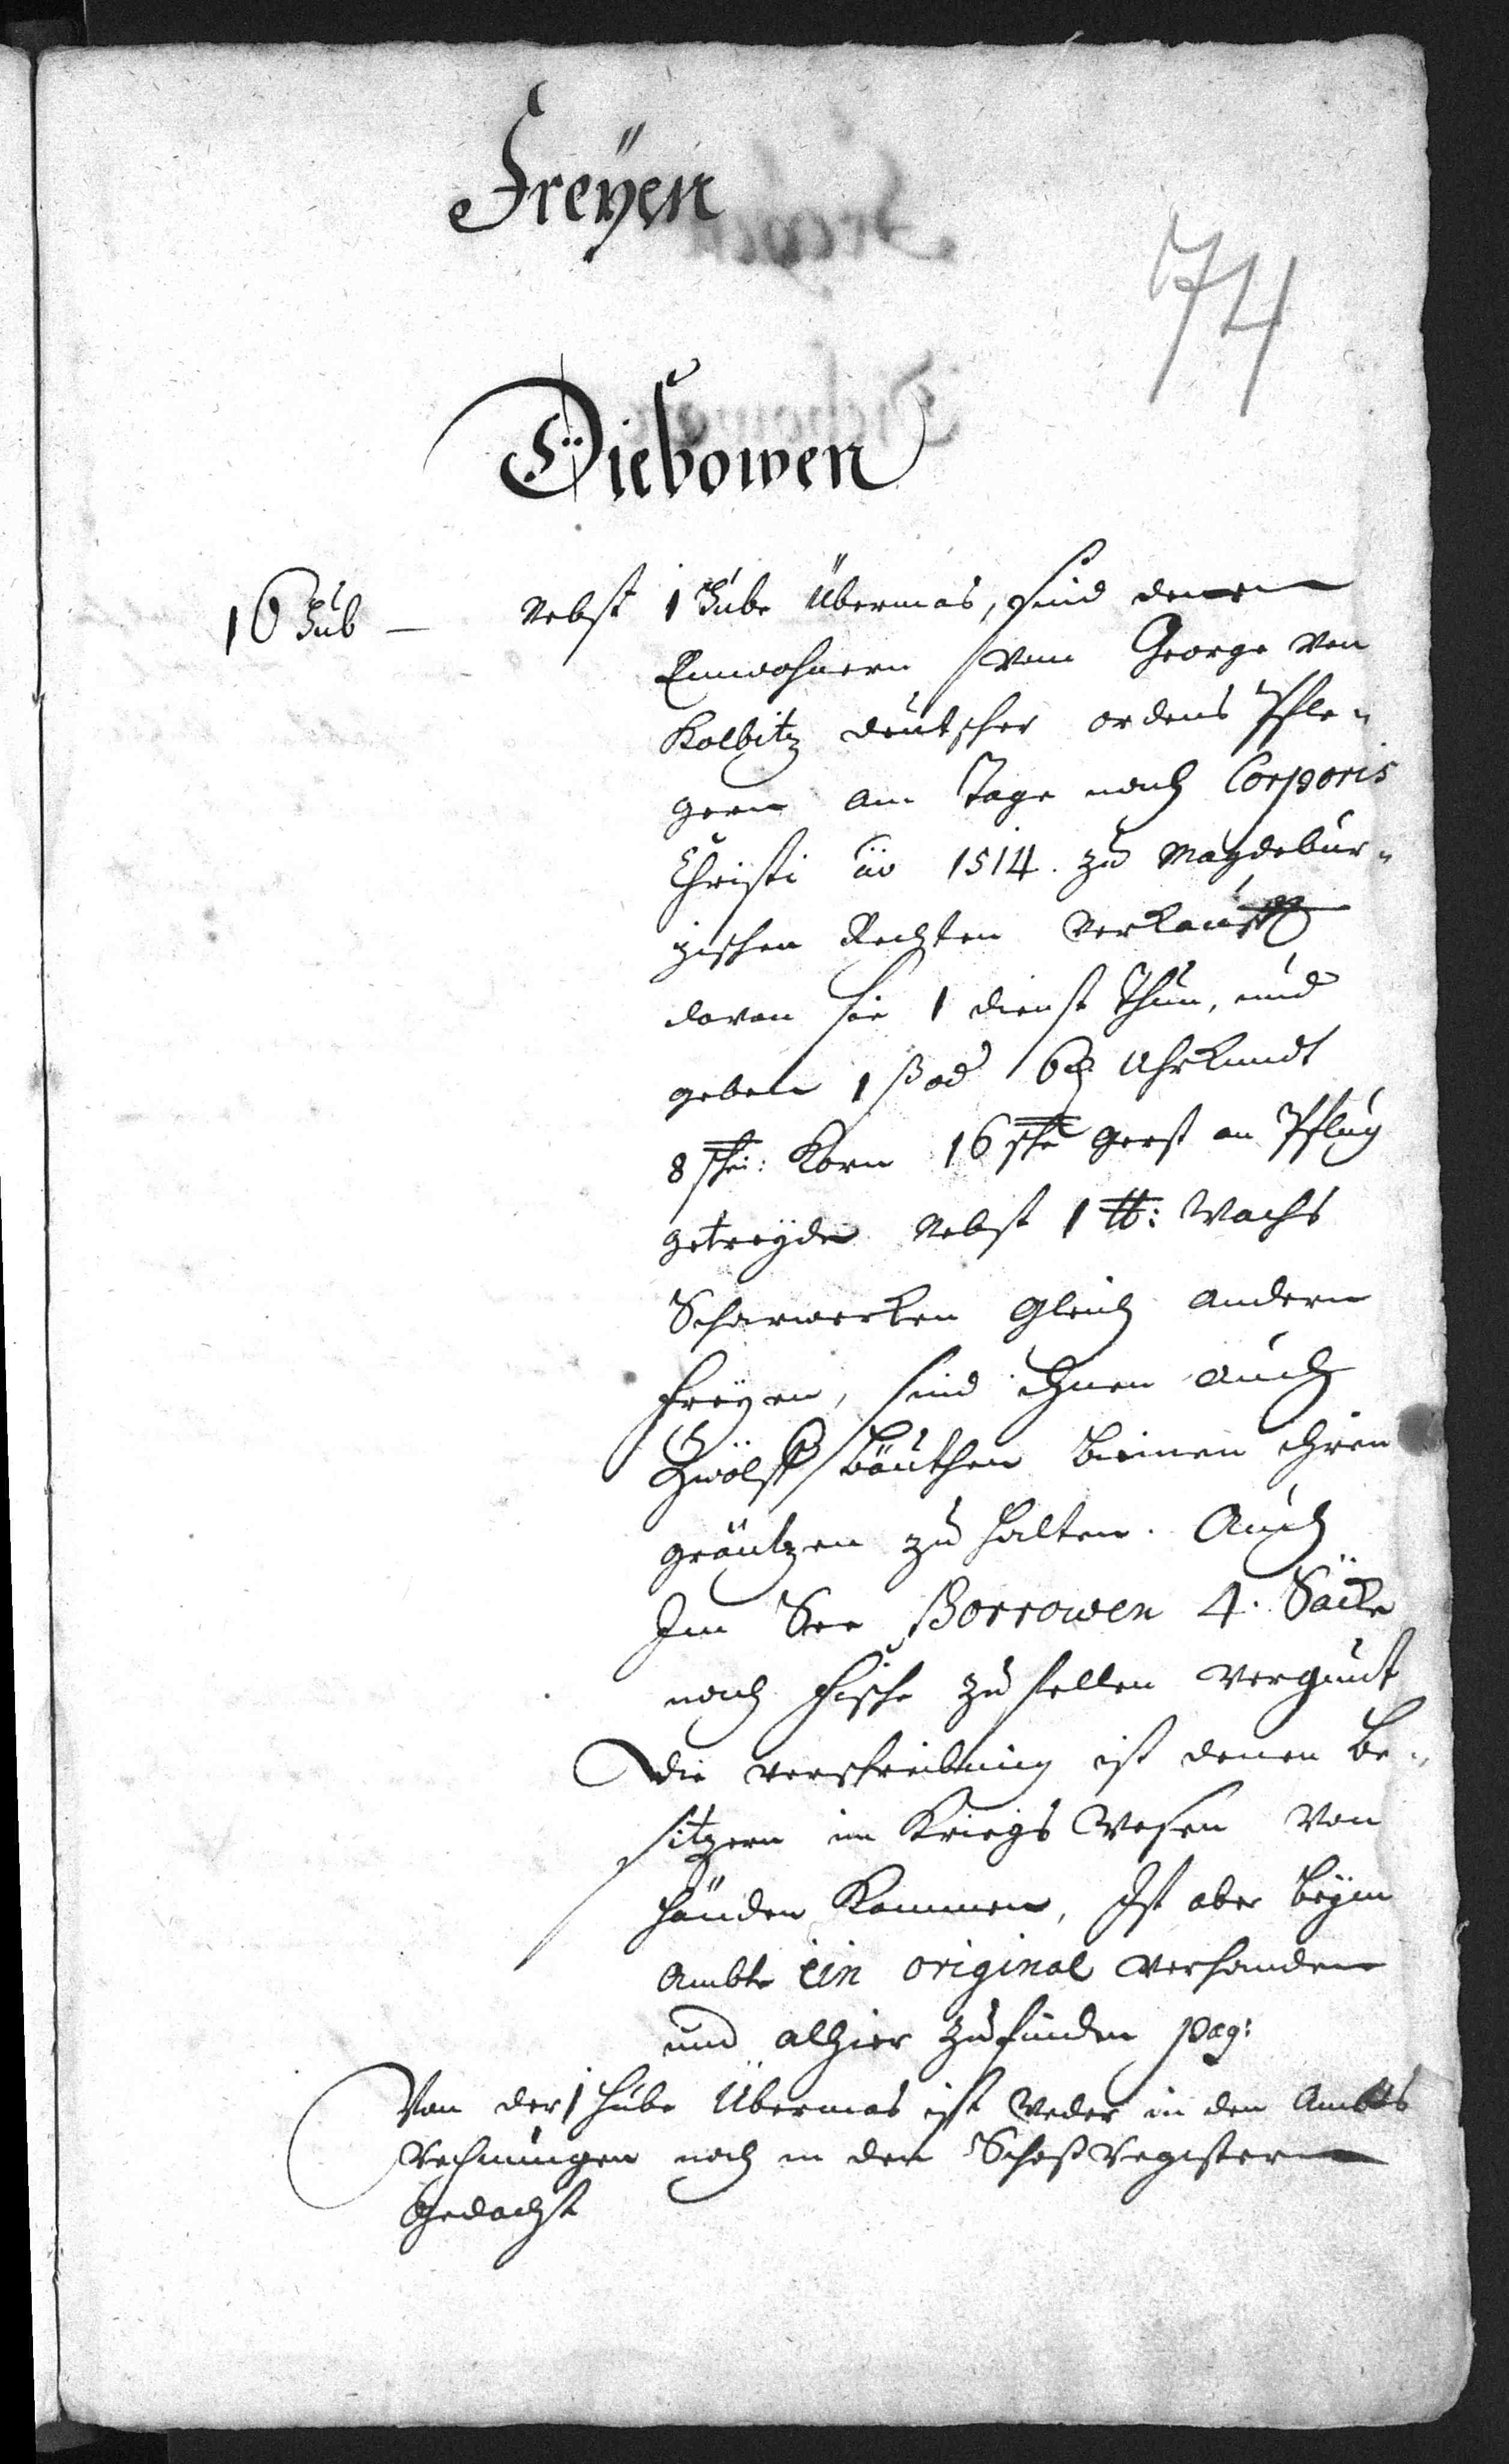 Freÿen
74
Diebowen
16 Hub — Nebst 1 Hube Übermas, sind denen
Einwohnern von George von
Kolbitz deutscher ordens Pfle-
gern am Tage nach Corporis
Christi ao 1514. zu Magdebur-
gischen Rechten verkaufft
davon sie 1 dienst thun, und
geben 1 ₰ Uhrkundt
8 sche: Korn 16 sche gerst an Pflug
getreÿde Nebst 1 ℔: Wachs
Scharwerken gleich andern
freÿen, sind ihnen auch
Zwölff bäuthen binnen ihren
gräntzen zu halten. Auch
Im See Borrowen 4. Säcke
nach fische zu stellen vergunt
Die verschreibung ist denen Be-
sitzern im Kriegs Wesen von
händen kommen, Ist aber beÿm
Ambte ein original verhanden
und alhier zu finden pag:
Von der 1 Hube Übermas ist weder in den Ambts
Rechnungen noch in den Schoß Registern
Gedacht